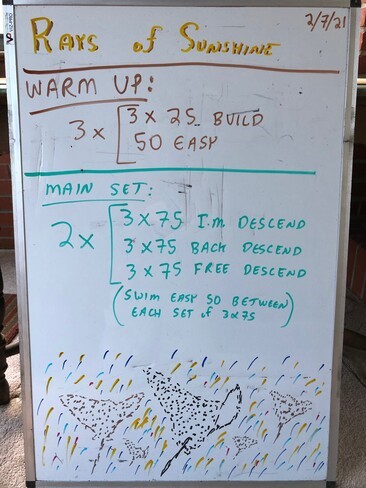 2/7/21
RAYS of SUNSHINE
WARM UP:
3 x [3 x 25 BUILD
50 EASY
MAIN SET:
2x [3x75 I.M DESCEND
3x75 BACK DESCEND
3x75 FREE DESCEND
(SWIM EASY 50 BETWEEN
EACH SET of 3x75)